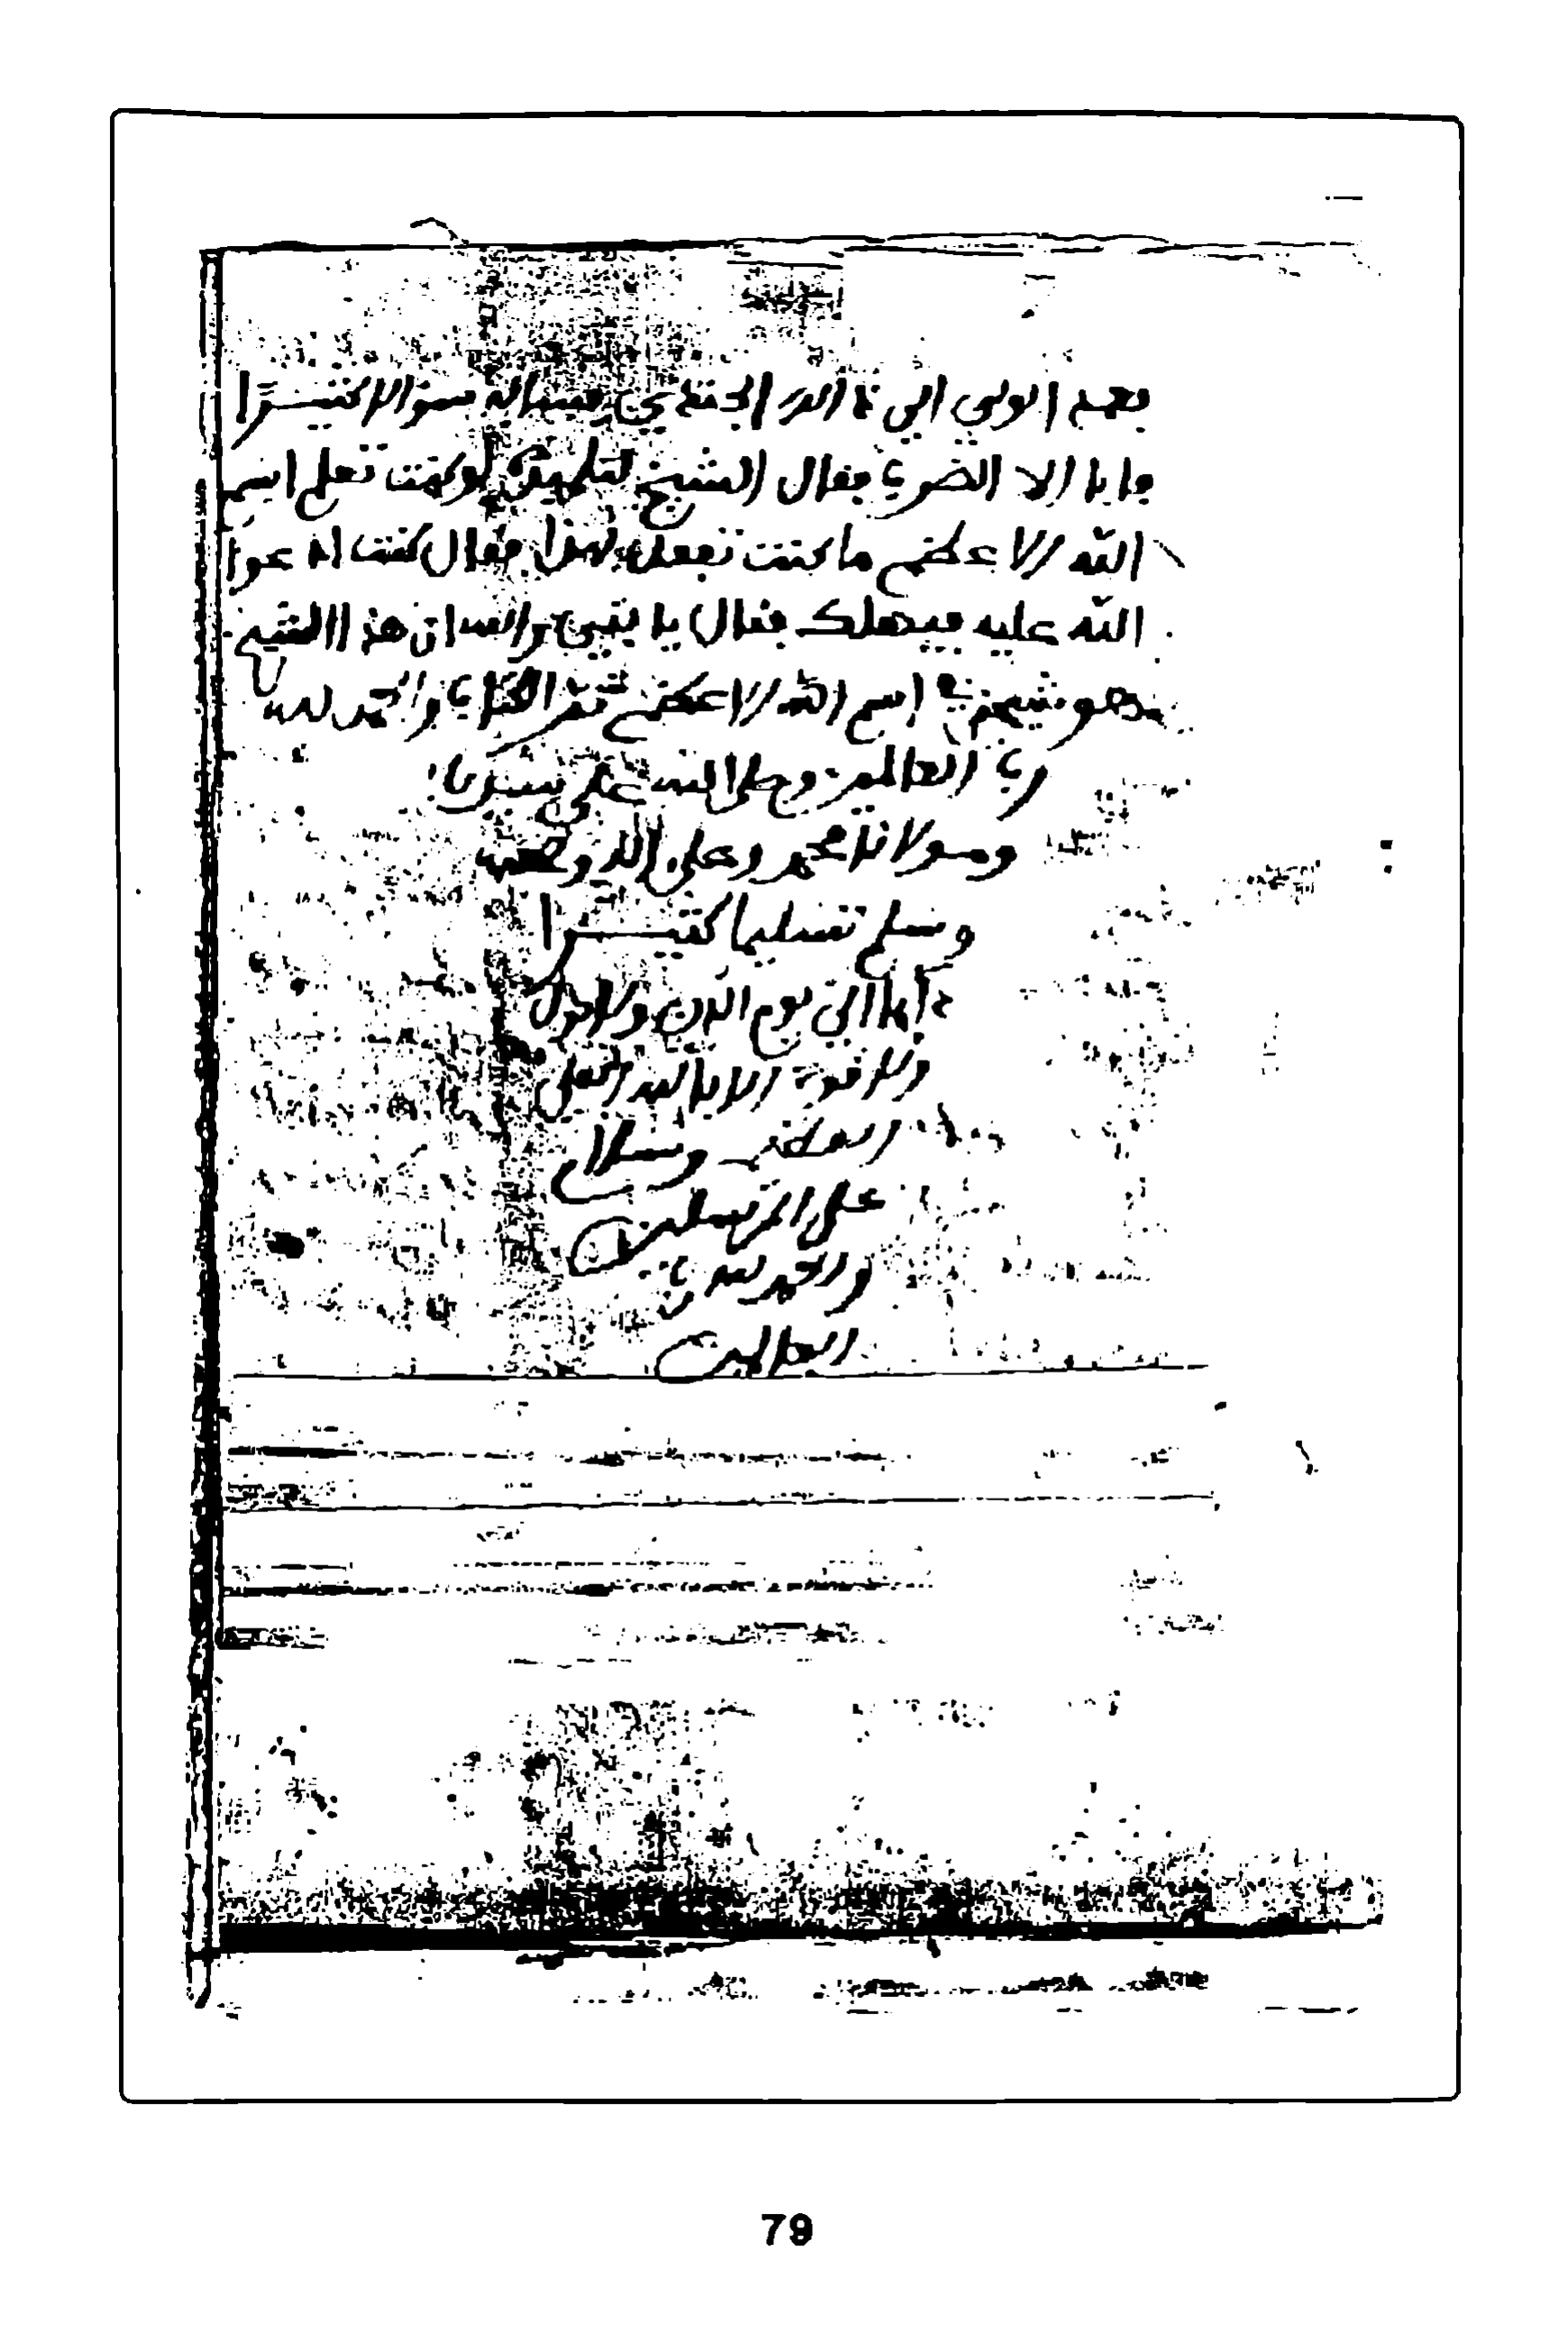 الولي الى ذالك الجندي فسأله سؤالا كثيرا
فابا الا الضرب فقال الشيخ لتلميذه لو كنت تعلم اسم
الله الاعظم ما كنت تفعل بهذا فقال كنت ادعوا
الله عليه فيهلك فقال يا بني والله ان هذا الشيخ
هو شيخي في اسم الله الاعظم تم الكتاب والحمد لله
رب العالمين وصلى الله على سيدنا
ومولانا محمد وعلى اله وصحبه
وسلم تسليما كثيرا
دائما الى يوم الدين ولا حول
ولا قوة الا بالله العلي
العظيم وسلام
على المرسلين
والحمد لله رب
العالمين
79